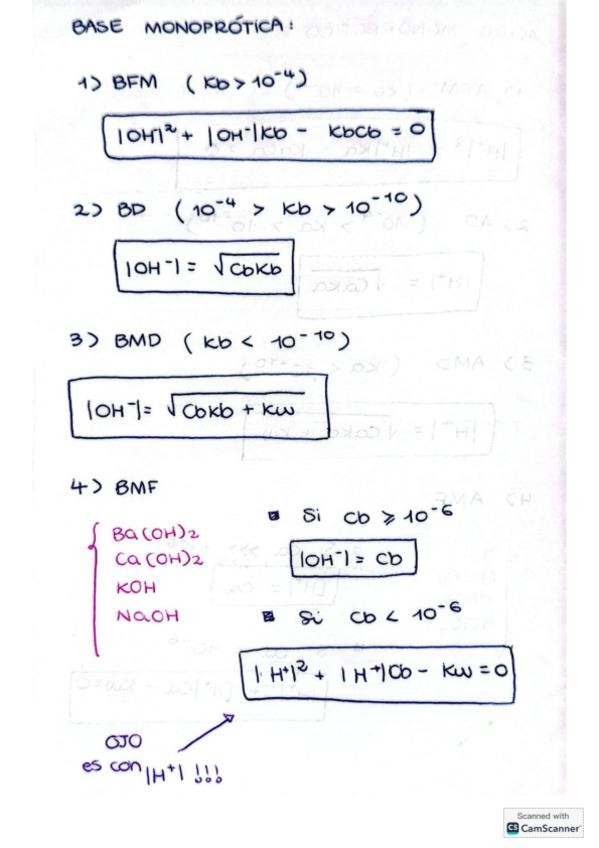 BASE MONOPRÓTICA:
1) BFM (Kb > 10⁻⁴)
|OH⁻|² + |OH⁻|Kb - KbCb = 0
2) BD (10⁻⁴ > Kb > 10⁻¹⁰)
|OH⁻| = √CbKb
3) BMD (Kb < 10⁻¹⁰)
|OH⁻| = √CbKb + Kw
4) BMF
Ba(OH)2
Ca(OH)2
KOH
NaOH
Si Cb ⩾ 10⁻⁶
|OH⁻| = Cb
Si Cb < 10⁻⁶
|H⁺|² + |H⁺|Cb - Kw = 0
OJO
es con |H⁺| !!!
Scanned with
CS CamScanner